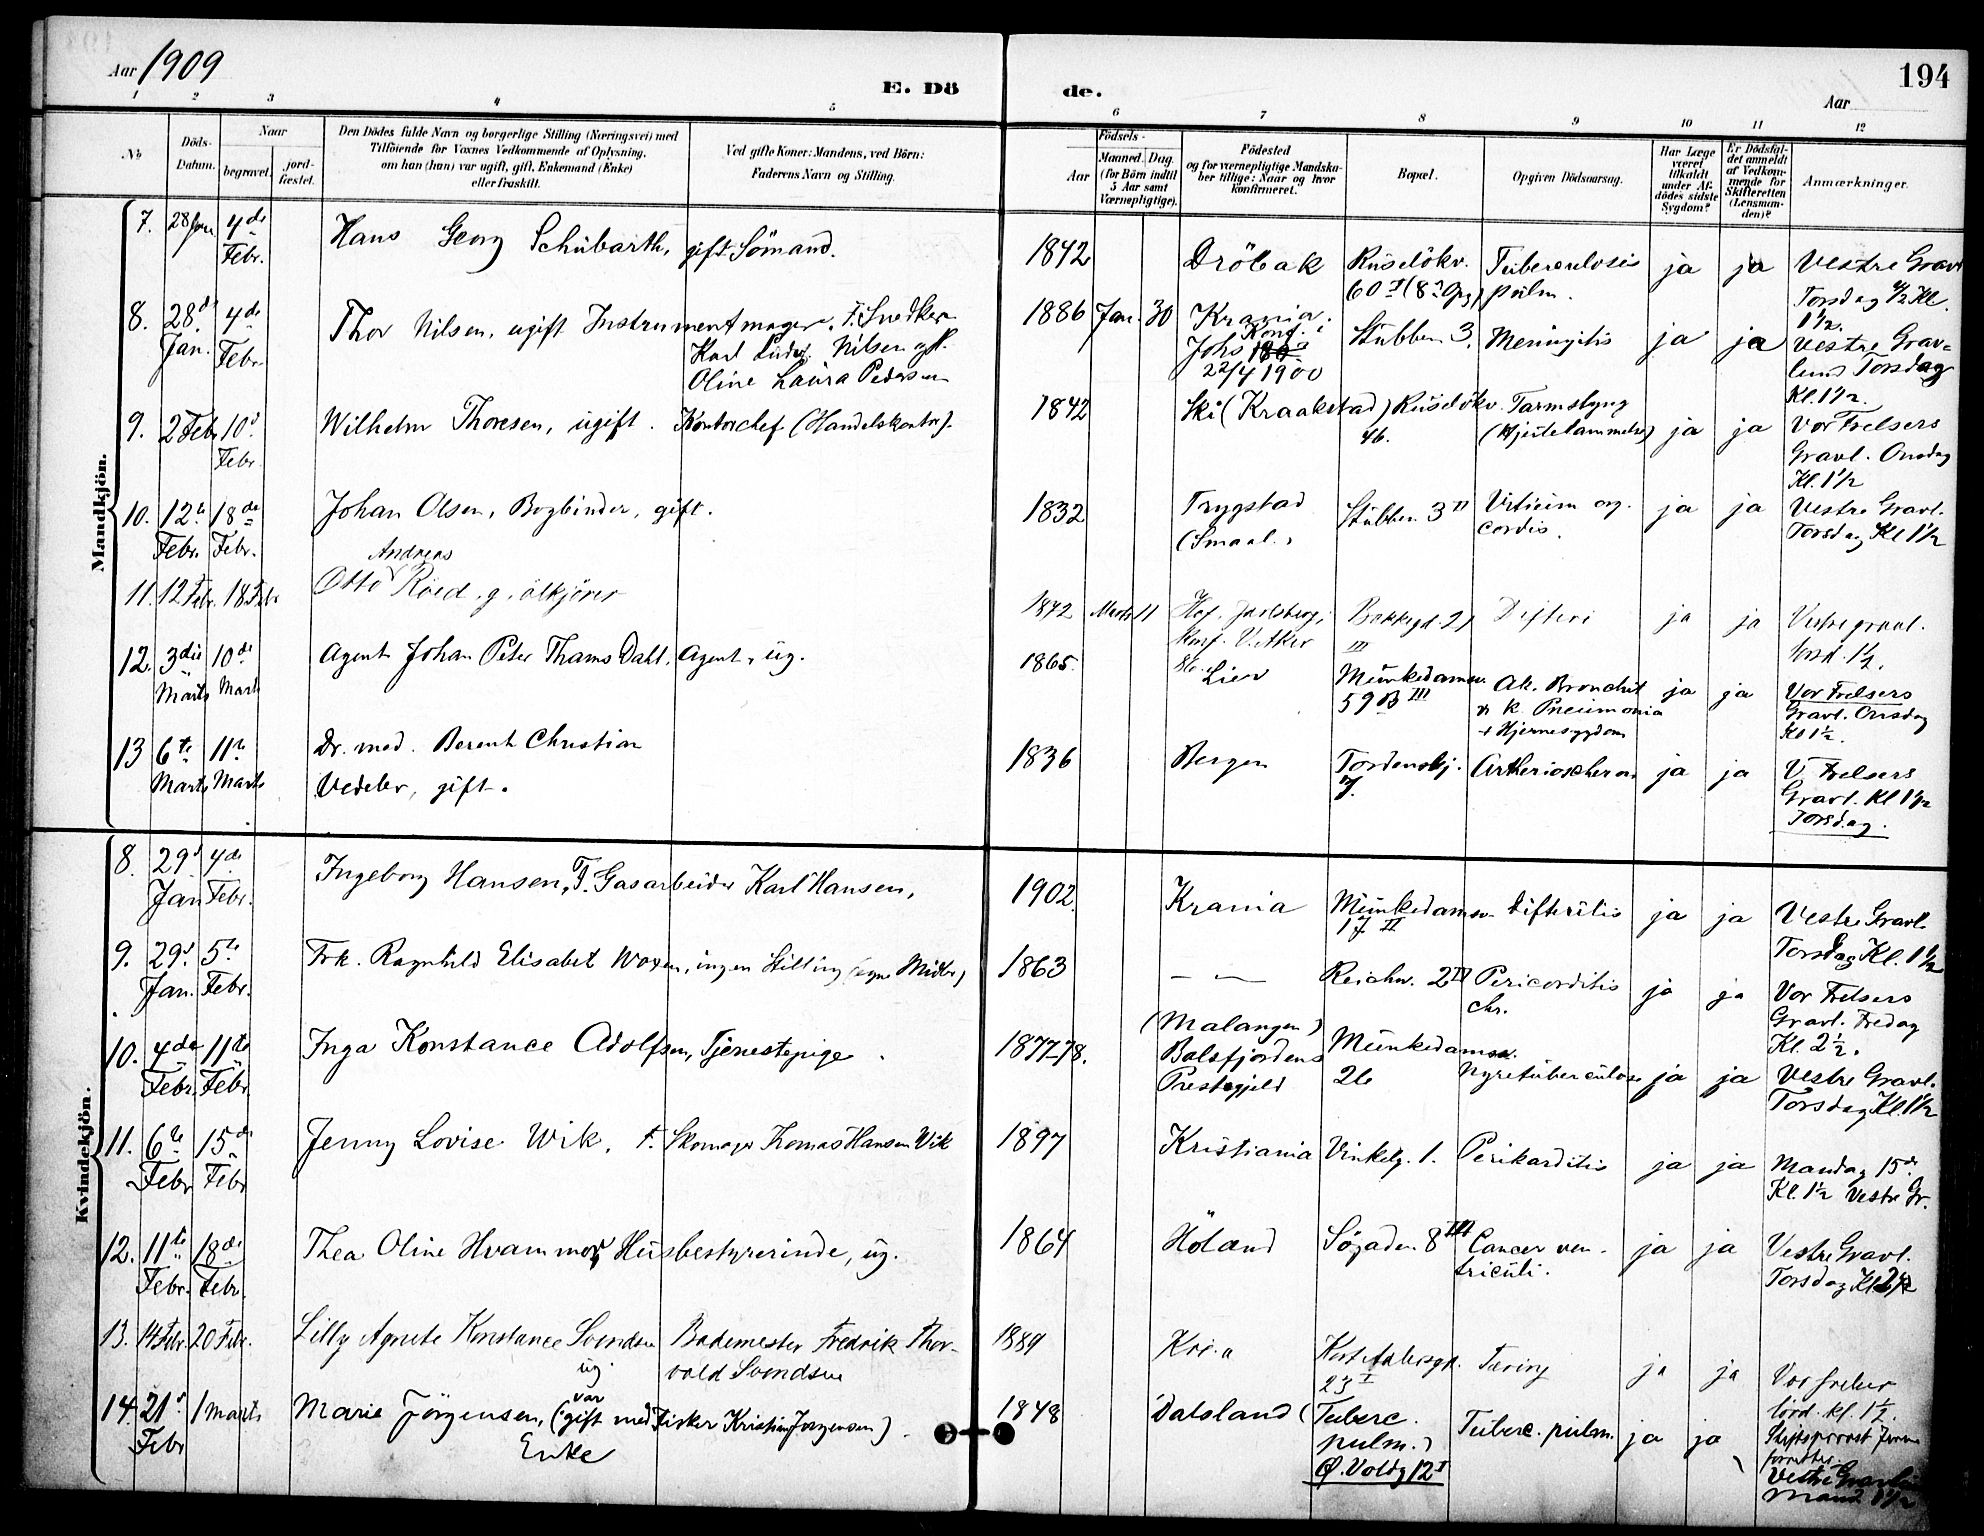 Aar 1909
E. Dö de.
194
Aar
1 2 3 4 5 6 7 8 9 10 11 12
No
Döds-Datum.
Naar
begravet.
jord-fæstet.
Den Dödes fulde Navn og borgerlige Stilling (Næringsvei) med
Tilföiende for Voxnes Vedkommende af Oplysning,
om han (hun) var ugift, gift, Enkemand (Enke)
eller fraskilt.
Ved gifte Koner: Mandens, ved Börn:
Faderens Navn og Stilling.
Födsels-
Aar
Maaned. Dag.
(for Börn indtil
5 Aar samt
Værnepligtige).
Födested
og for værnepligtige Mandska-
ber tillige: Naar og hvor
konfirmeret.
Bopæl.
Opgiven Dödsaarsag.
Har Læge
været
tilkaldt
under Af-
dödes sidste
Sygdom?
Er Dödsfal-
det anmeldt
af Vedkom-
mende for
Skifteretten
(Lensman-
den)?
Anmærkninger.
Mandkjön.
7. 28 Jan. 4de Febr. Hans Georg Schübarth, gift Sömand. 1842 Dröbak Rüselökv. 60 Tüberculosis pülm. ja ja Vestre Grav Torsdag 4/2 Kl. 1½.
8. 28de Jan. 4de Febr. Thor Nilsen, ugift Instrumentmager, F. Snedker Karl Nilsen og Oline Laüra Pedersen 1886 Jan. 30 Krania. Konf. i Johs 22/4 1900 Stübben 3. Meningitis ja ja Vestre Gravlund Torsdag Kl. 1½.
9. 2 Febr 10d Febr. Wilhelm Thoresen, ügift. Kontorchef (Handelskontor). 1842 Ski (Kraakstad) Rüselökv. 46. Tarmslyng (Hjertelammelse) ja ja Vor Frelsers Gravl. Onsdag Kl. 1½
10. 12te Febr. 18de Febr. Johan Olsen, Bogbinder, gift. 1832 Trygstad (Smaal.) Stübben 3 II Vitiüm org. cordis. ja ja Vestre Gravl. Torsdag Kl 1½
11. 12 Febr. 18 Febr Otto Andreas Röed, g. ölkjörer 1872 Marts 11 Jarlsberg, Konf. V. Aker 86. Bakkegd. 21 III Difteri ja ja Vestre gravl. Torsd. 1½.
12. 3die Marts 10de Marts Agent Johan Peter Thams Dahl, Agent, üg. 1865. Lier Münkedamsv. 59 B III Ak. Bronchit k. Pneümonia + Hjernesygdom ja ja Vor Frelsers Gravl. Onsdag Kl 1½.
13 6te Marts 11te Marts Dr. med. Berent Christian Vedeler, gift. 1836 Bergen Tordenskj. 7. Artherioscleros ja ja V. Frelsers Gravl. Kl 1½ Torsdag.
Kvindekjön.
8. 29d Jan 4de Febr. Ingeborg Hansen, F. Gasarbeider Karl Hansen, 1902. Krania Münkedamsv. 17 II Difteritis ja ja Vestre Gravl. Torsdag Kl. 1½
9. 29d Jan. 5te Febr. Frk. Ragnhild Elisabet Woxen, ingen Stilling (egne Midler) 1863 — — Reichw. 2 II Pericorditis chr. ja ja Vor Frelsers Gravl. Fredag Kl. 2½.
10. 4de Febr. 11te Febr. Inga Konstance Adolfsen, Tjenestepige. 1877-78. (Malangen) Balsfjordens Prestegjeld Münkedamsv. 26 Nyretüberculose ja ja Vestre Gravl. Torsdag Kl. 1½
11. 6te Febr 15de Febr Jenny Lovise Wik, F. Skomager Tomas Hansen Wik 1897 Kristiania Vinkelg. 1. Perikarditis ja ja Mandag 15de Kl. 1½ Vestre Gr.
12. 11te Febr. 18de Febr. Thea Oline Hvammer, Hüsbestyrerinde, üg. 1864 Höland Sögaden 8 III Cancer ventricüli. ja ja Vestre Gravl. Torsdag Kl. 2½
13. 14 Febr. 20 Febr. Lilly Agnete Konstance Svendsen üg. Bademester Fredrik Thorvald Svendsen 1889 Kri.a 23 I Tæring ja ja Vor frelser lörd. kl. 1½. Stiftsprovst forretter
14. 21d Febr 1 Marts Marie Jörgensen, (var gift med Fisker Kristian Jörgensen). Enke 1848 Dalsland (Tüberc. pülm.) Ø. Voldg 12 I Tüberc. pülm. ja ja Vestre Gravlund Mand. 1½